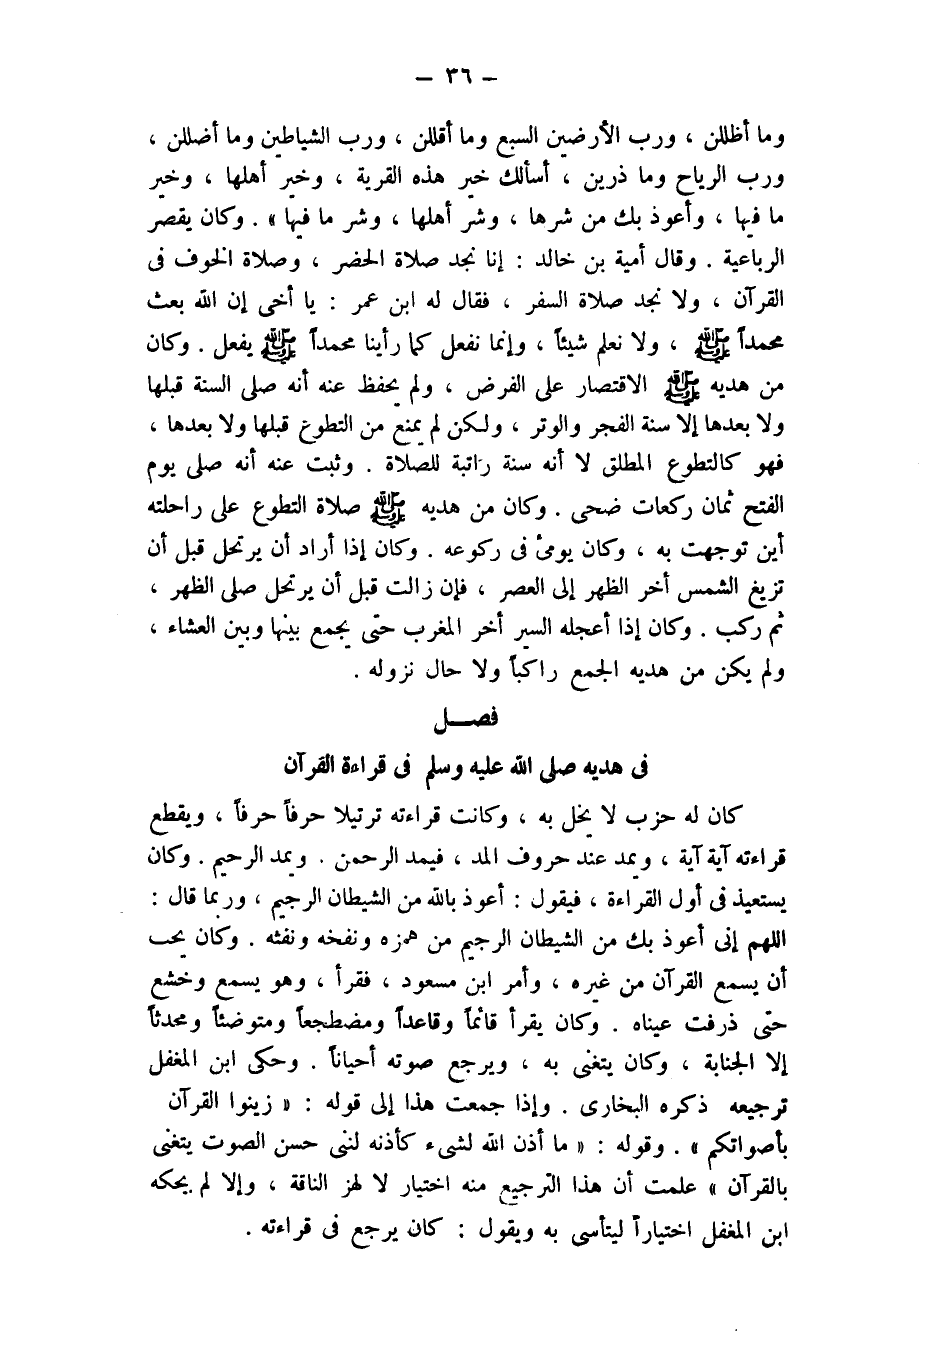 – ٣٦ –
وما أظللن ، ورب الأرضين السبع وما أقللن ، ورب الشياطين وما أضللن ،
ورب الرياح وما ذرين ، أسألك خير هذه القرية ، وخير أهلها ، وخير
ما فيها ، وأعوذ بك من شرها ، وشر أهلها ، وشر ما فيها » . وكان يقصر
الرباعية . وقال أمية بن خالد : إنا نجد صلاة الحضر ، وصلاة الخوف فى
القرآن ، ولا نجد صلاة السفر ، فقال له ابن عمر : يا أخى إن الله بعث
محمداً ﷺ ، ولا نعلم شيئاً ، وإنما نفعل كما رأينا محمداً ﷺ يفعل . وكان
من هديه ﷺ الاقتصار على الفرض ، ولم يحفظ عنه أنه صلى السنة قبلها
ولا بعدها إلا سنة الفجر والوتر ، ولكن لم يمنع من التطوع قبلها ولا بعدها ،
فهو كالتطوع المطلق لا أنه سنة راتبة للصلاة . وثبت عنه أنه صلى يوم
الفتح ثمان ركعات ضحى . وكان من هديه ﷺ صلاة التطوع على راحلته
أين توجهت به ، وكان يومئ فى ركوعه . وكان إذا أراد أن يرتحل قبل أن
تزيغ الشمس أخر الظهر إلى العصر ، فإن زالت قبل أن يرتحل صلى الظهر ،
ثم ركب . وكان إذا أعجله السير أخر المغرب حتى يجمع بينها وبين العشاء ،
ولم يكن من هديه الجمع راكباً ولا حال نزوله .
فصــل
فى هديه صلى الله عليه وسلم فى قراءة القرآن
كان له حزب لا يخل به ، وكانت قراءته ترتيلا حرفاً حرفاً ، ويقطع
قراءته آية آية ، ويمد عند حروف المد ، فيمد الرحمن . ويمد الرحيم . وكان
يستعيذ فى أول القراءة ، فيقول : أعوذ بالله من الشيطان الرجيم ، وربما قال :
اللهم إنى أعوذ بك من الشيطان الرجيم من همزه ونفخه ونفثه . وكان يحب
أن يسمع القرآن من غيره ، وأمر ابن مسعود ، فقرأ ، وهو يسمع وخشع
حتى ذرفت عيناه . وكان يقرأ قائماً وقاعداً ومضطجعاً ومتوضئاً ومحدثاً
إلا الجنابة ، وكان يتغنى به ، ويرجع صوته أحياناً . وحكى ابن المغفل
ترجيعه ذكره البخارى . وإذا جمعت هذا إلى قوله : « زينوا القرآن
بأصواتكم » . وقوله : « ما أذن الله لشىء كأذنه لنبى حسن الصوت يتغنى
بالقرآن » علمت أن هذا الترجيع منه اختيار لا لهز الناقة ، وإلا لم يحكه
ابن المغفل اختياراً ليتأسى به ويقول : كان يرجع فى قراءته .